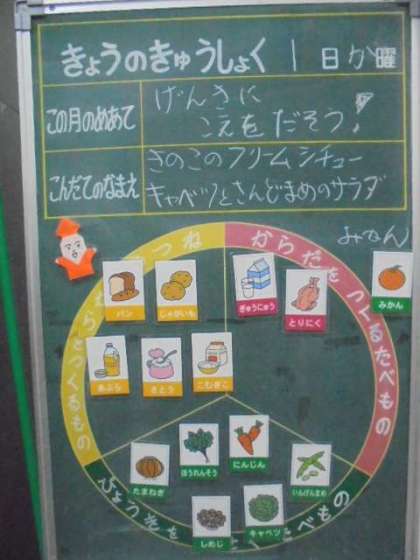 きょうのきゅうしょく 1日か曜
この月のめあて
げんきに
こえをだそう!
こんだてのなまえ
きのこのクリームシチュー
キャベツとさんどまめのサラダ
みかん
からだをつくるたべもの
ぎゅうにゅう
とりにく
みかん
パン
じゃがいも
あぶら
さとう
こむぎこ
たまねぎ
ほうれんそう
にんじん
いんげんまめ
しめじ
キャベツ